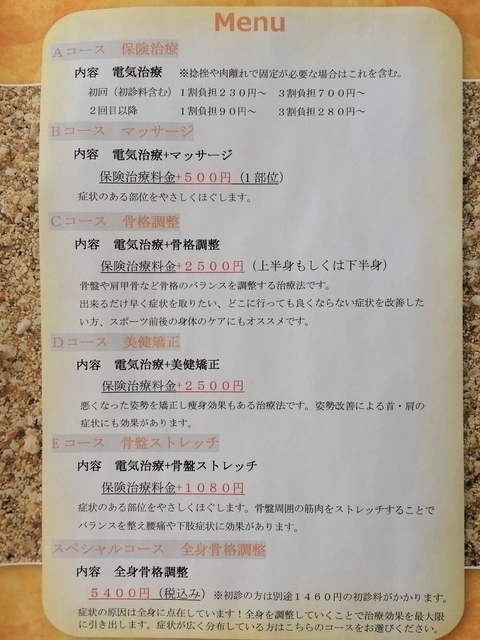 Menu
Aコース 保険治療
内容 電気治療 ※捻挫や肉離れで固定が必要な場合はこれを含む。
初回（初診料含む）1割負担230円～ 3割負担700円～
2回目以降 1割負担90円～ 3割負担280円～
Bコース マッサージ
内容 電気治療+マッサージ
保険治療料金+500円（1部位）
症状のある部位をやさしくほぐします。
Cコース 骨格調整
内容 電気治療+骨格調整
保険治療料金+2500円（上半身もしくは下半身）
骨盤や肩甲骨など骨格のバランスを調整する治療法です。
出来るだけ早く症状を取りたい、どこに行っても良くならない症状を改善した
い方、スポーツ前後の身体のケアにもオススメです。
Dコース 美健矯正
内容 電気治療+美健矯正
保険治療料金+2500円
悪くなった姿勢を矯正し痩身効果もある治療法です。姿勢改善による首・肩の
症状にも効果があります。
Eコース 骨盤ストレッチ
内容 電気治療+骨盤ストレッチ
保険治療料金+1080円
症状のある部位をやさしくほぐします。骨盤周囲の筋肉をストレッチすることで
バランスを整え腰痛や下肢症状に効果があります。
スペシャルコース 全身骨格調整
内容 全身骨格調整
5400円（税込み）※初診の方は別途1460円の初診料がかかります。
症状の原因は全身に点在しています！全身を調整していくことで治療効果を最大限
に引き出します。症状が広く分布している方はこちらのコースをお選びください。